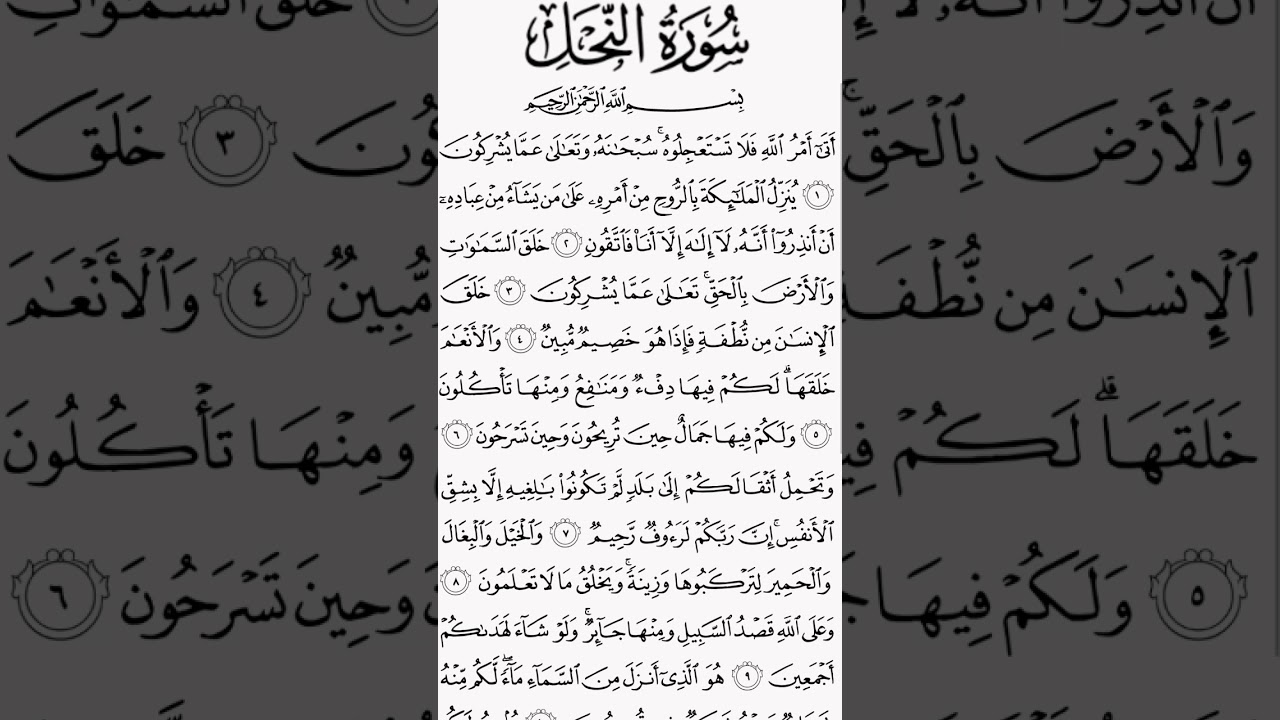 سُورَةُ النَّحْلِ
بِسْمِ اللَّهِ الرَّحْمَٰنِ الرَّحِيمِ
أَتَىٰٓ أَمْرُ ٱللَّهِ فَلَا تَسْتَعْجِلُوهُ ۚ سُبْحَٰنَهُۥ وَتَعَٰلَىٰ عَمَّا يُشْرِكُونَ
١ يُنَزِّلُ ٱلْمَلَٰٓئِكَةَ بِٱلرُّوحِ مِنْ أَمْرِهِۦ عَلَىٰ مَن يَشَآءُ مِنْ عِبَادِهِۦٓ
أَنْ أَنذِرُوٓا۟ أَنَّهُۥ لَآ إِلَٰهَ إِلَّآ أَنَا۠ فَٱتَّقُونِ ٢ خَلَقَ ٱلسَّمَٰوَٰتِ
وَٱلْأَرْضَ بِٱلْحَقِّ ۚ تَعَٰلَىٰ عَمَّا يُشْرِكُونَ ٣ خَلَقَ
ٱلْإِنسَٰنَ مِن نُّطْفَةٍ فَإِذَا هُوَ خَصِيمٌ مُّبِينٌ ٤ وَٱلْأَنْعَٰمَ
خَلَقَهَا ۗ لَكُمْ فِيهَا دِفْءٌ وَمَنَٰفِعُ وَمِنْهَا تَأْكُلُونَ
٥ وَلَكُمْ فِيهَا جَمَالٌ حِينَ تُرِيحُونَ وَحِينَ تَسْرَحُونَ ٦
وَتَحْمِلُ أَثْقَالَكُمْ إِلَىٰ بَلَدٍ لَّمْ تَكُونُوا۟ بَٰلِغِيهِ إِلَّا بِشِقِّ
ٱلْأَنفُسِ ۚ إِنَّ رَبَّكُمْ لَرَءُوفٌ رَّحِيمٌ ٧ وَٱلْخَيْلَ وَٱلْبِغَالَ
وَٱلْحَمِيرَ لِتَرْكَبُوهَا وَزِينَةً ۚ وَيَخْلُقُ مَا لَا تَعْلَمُونَ ٨
وَعَلَى ٱللَّهِ قَصْدُ ٱلسَّبِيلِ وَمِنْهَا جَآئِرٌ ۚ وَلَوْ شَآءَ لَهَدَىٰكُمْ
أَجْمَعِينَ ٩ هُوَ ٱلَّذِىٓ أَنزَلَ مِنَ ٱلسَّمَآءِ مَآءً ۖ لَّكُم مِّنْهُ